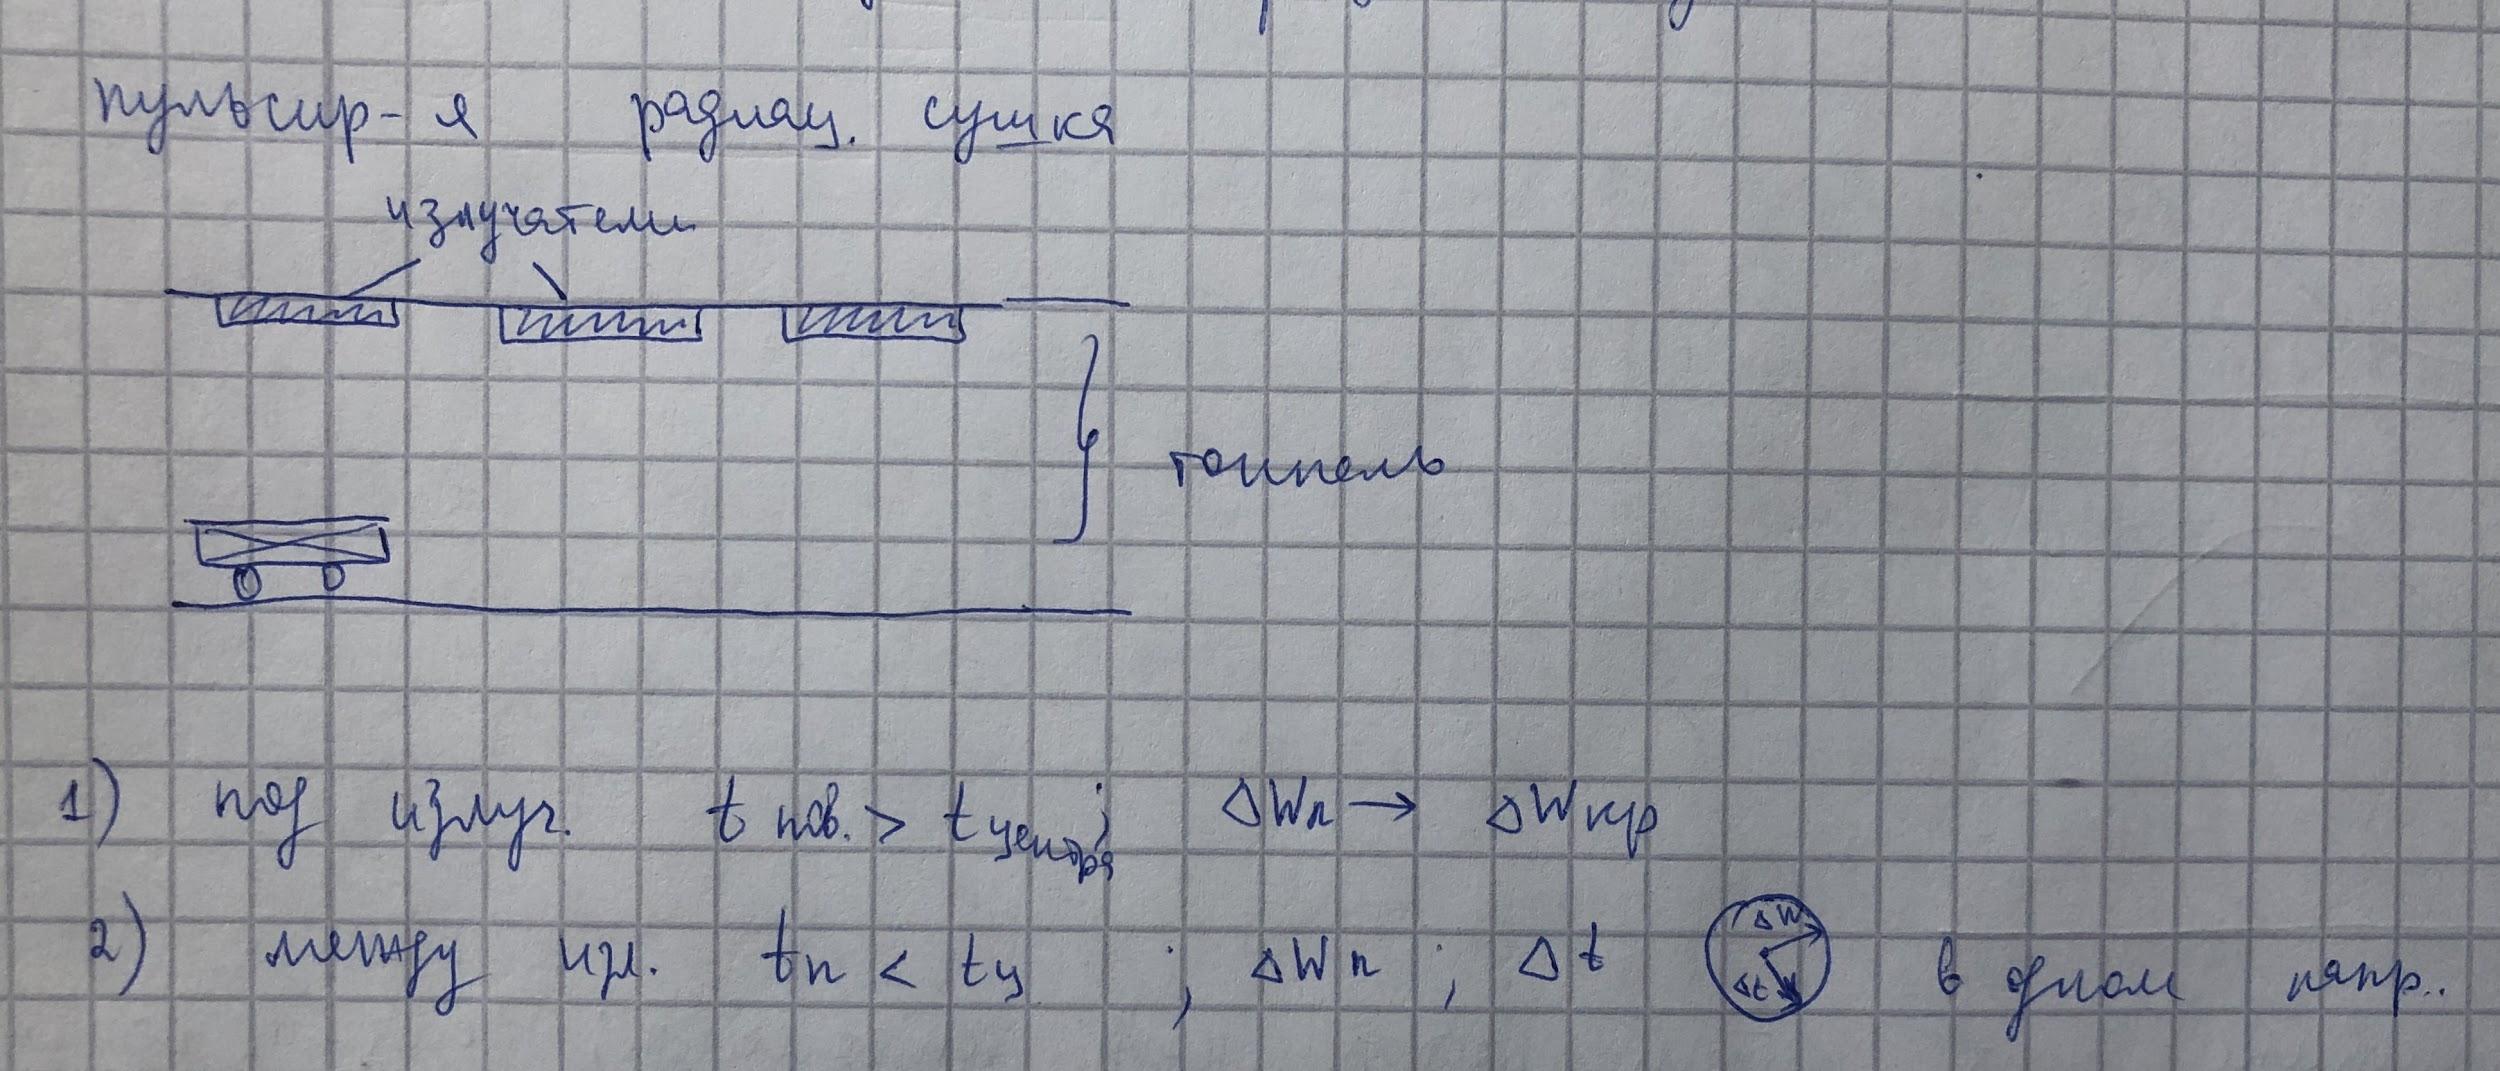 пульсир-я радиац. сушка
излучатели
тоннель
1) под излуч. t пов. > t центра; ΔWп → ΔWкр
2) между изл. tп < tц ; ΔWп ; Δt ΔW Δt в одном напр.